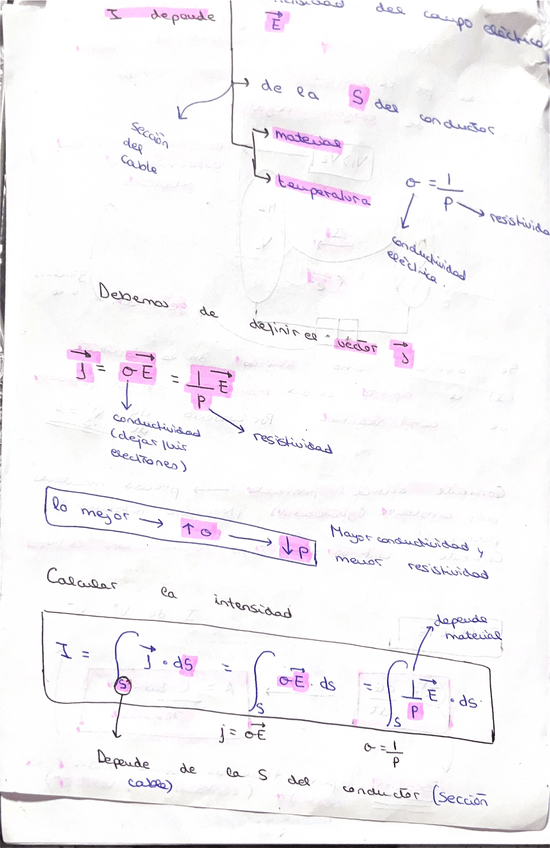 I depende
del campo eléctrico
E⃗
de la S del conductor
sección
del
cable
material
temperatura
σ = 1/ρ
resistivida
conductividad
eléctrica.
Debemos de definir el vector j⃗
j⃗ = σE⃗ = 1/ρ E⃗
conductividad
(dejar fluir
electrones)
resistividad
lo mejor → ↑σ → ↓ρ
Mayor conductividad y
menor resistividad
Calcular la intensidad
depende
material
I = ∫S j⃗ · dS = ∫S σE⃗ · ds = ∫S 1/ρ E⃗ · ds
j = σE⃗
σ = 1/ρ
Depende de la S del conductor (sección
cable)